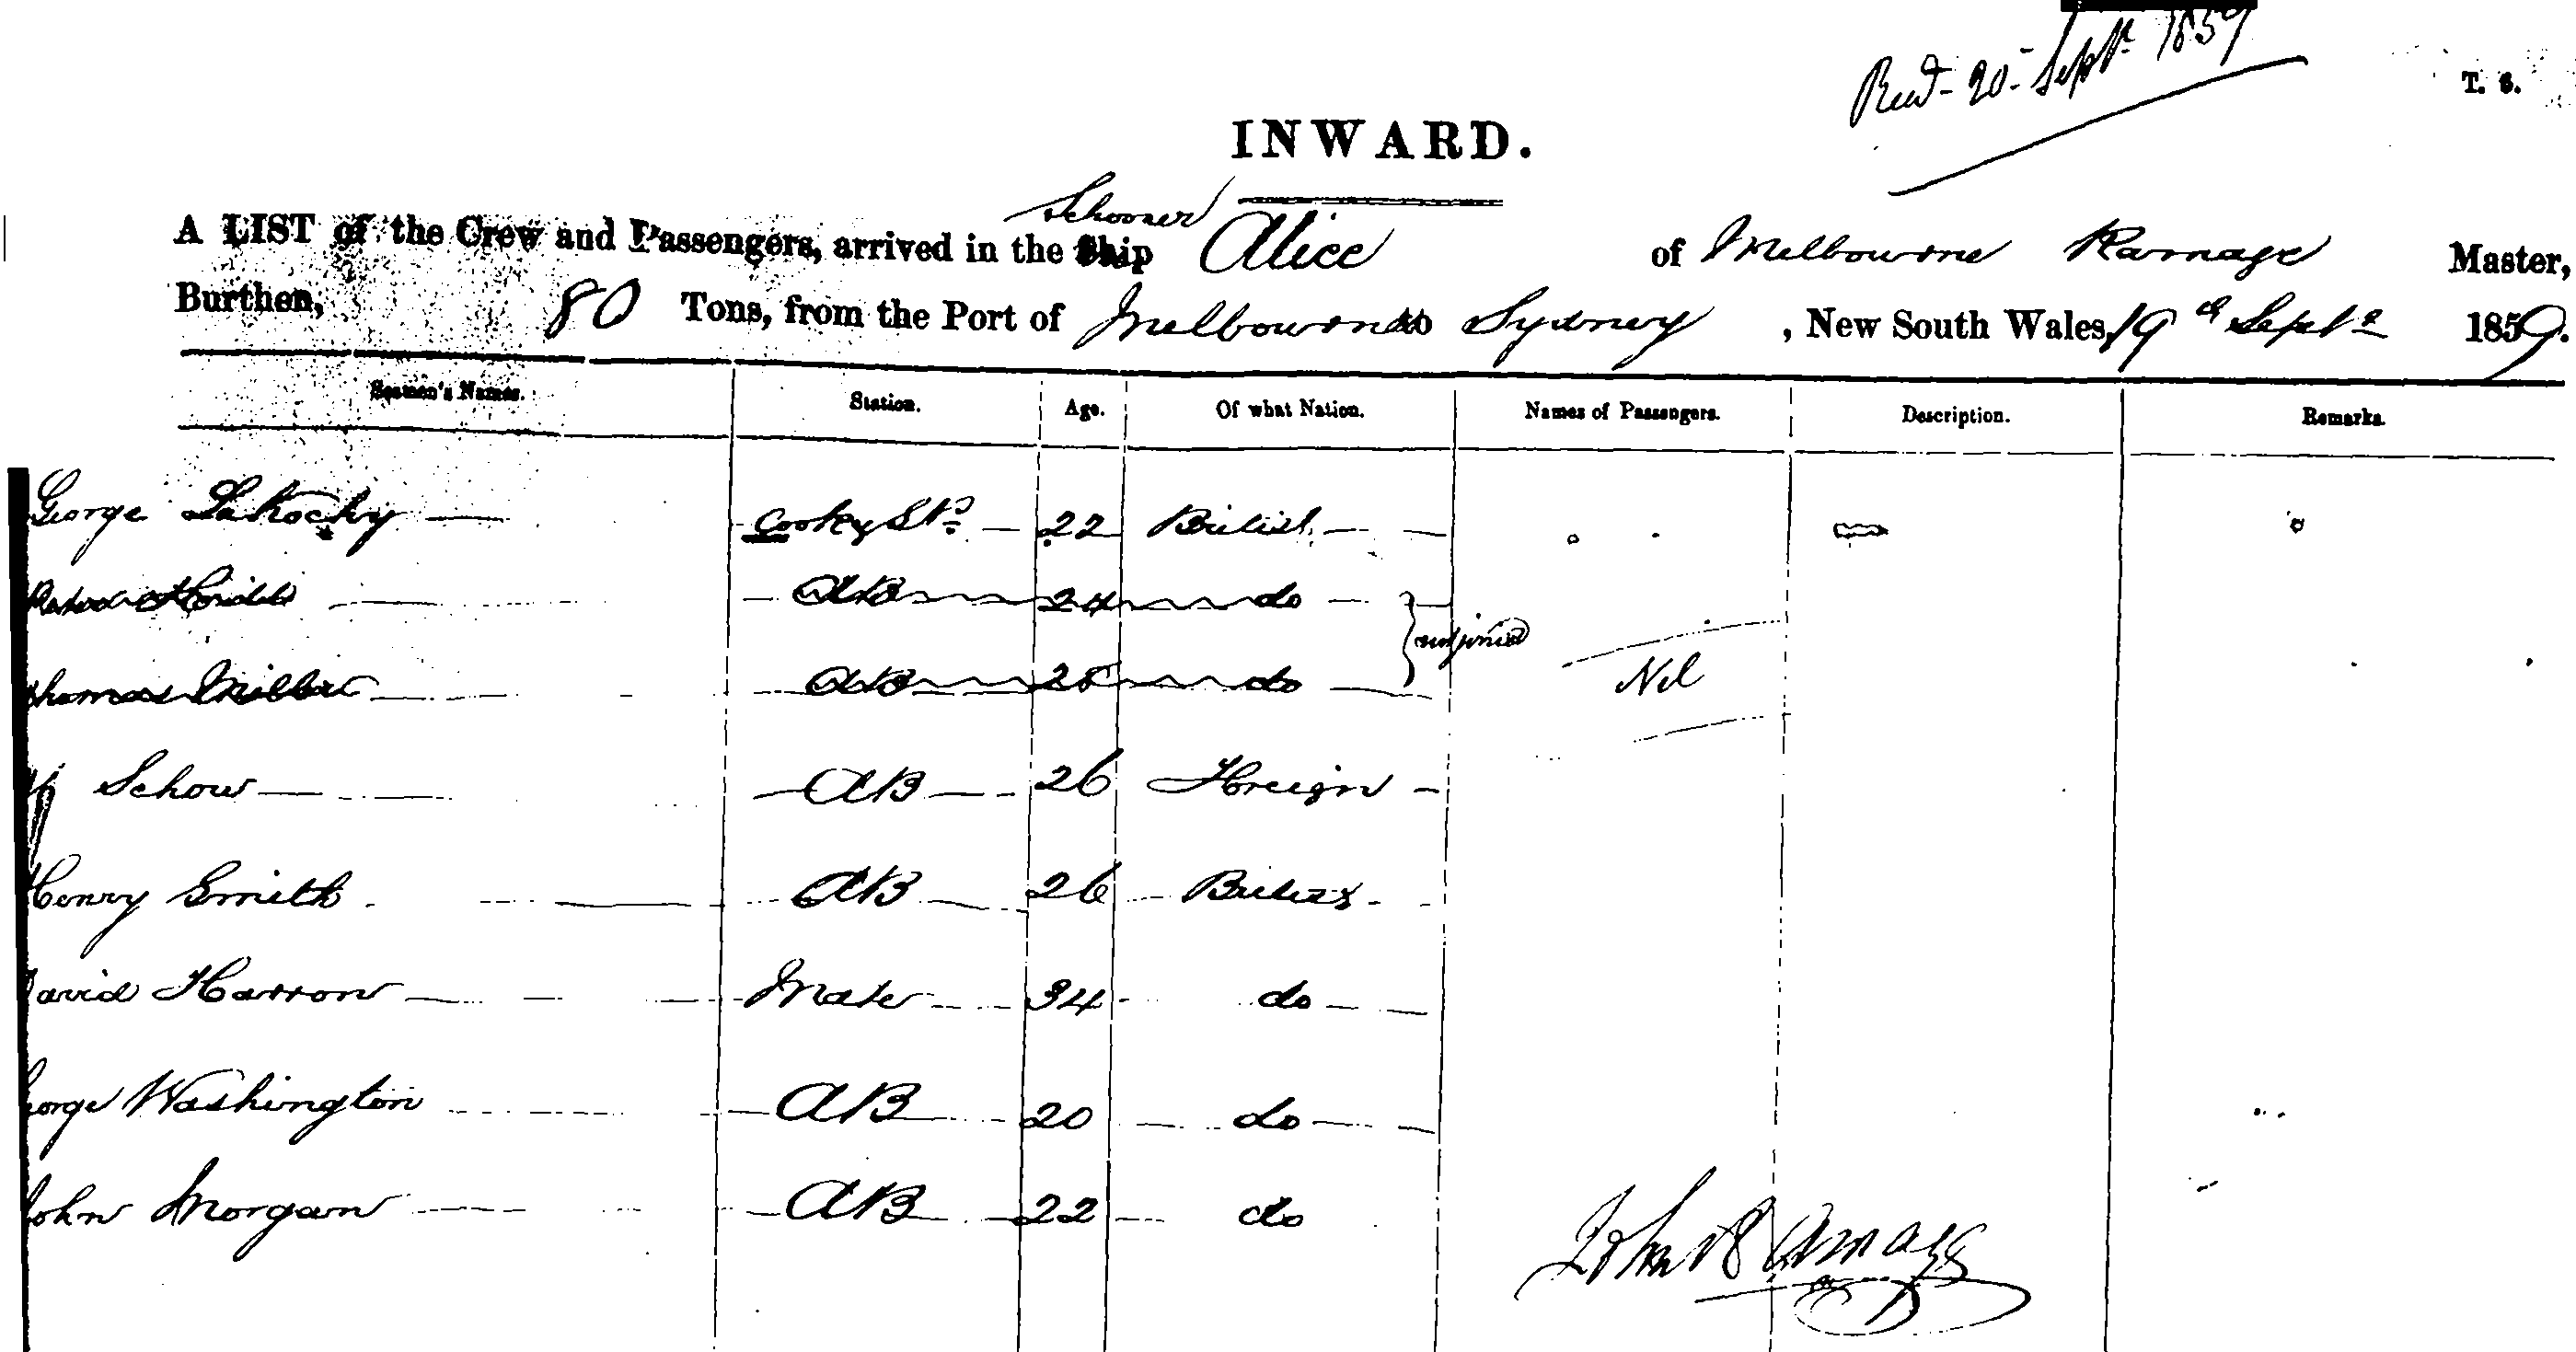 Recd 20 Septr 1859
T. S.
INWARD.
Schooner
A LIST of the Crew and Passengers, arrived in the Ship Alice of Melbourne Ramage Master,
Burthen, 80 Tons, from the Port of Melbourne to Sydney, New South Wales, 19th Septr 1859.
Seamen's Names. Station. Age. Of what Nation. Names of Passengers. Description. Remarks.
George Cook & Std 22 British
AB 24 do
Thomas Miller AB 25 do
Nil
Schow AB 26 Foreign
Henry Smith AB 26 British
David Harron Mate 34 do
George Washington AB 20 do
John Morgan AB 22 do
John Ramage